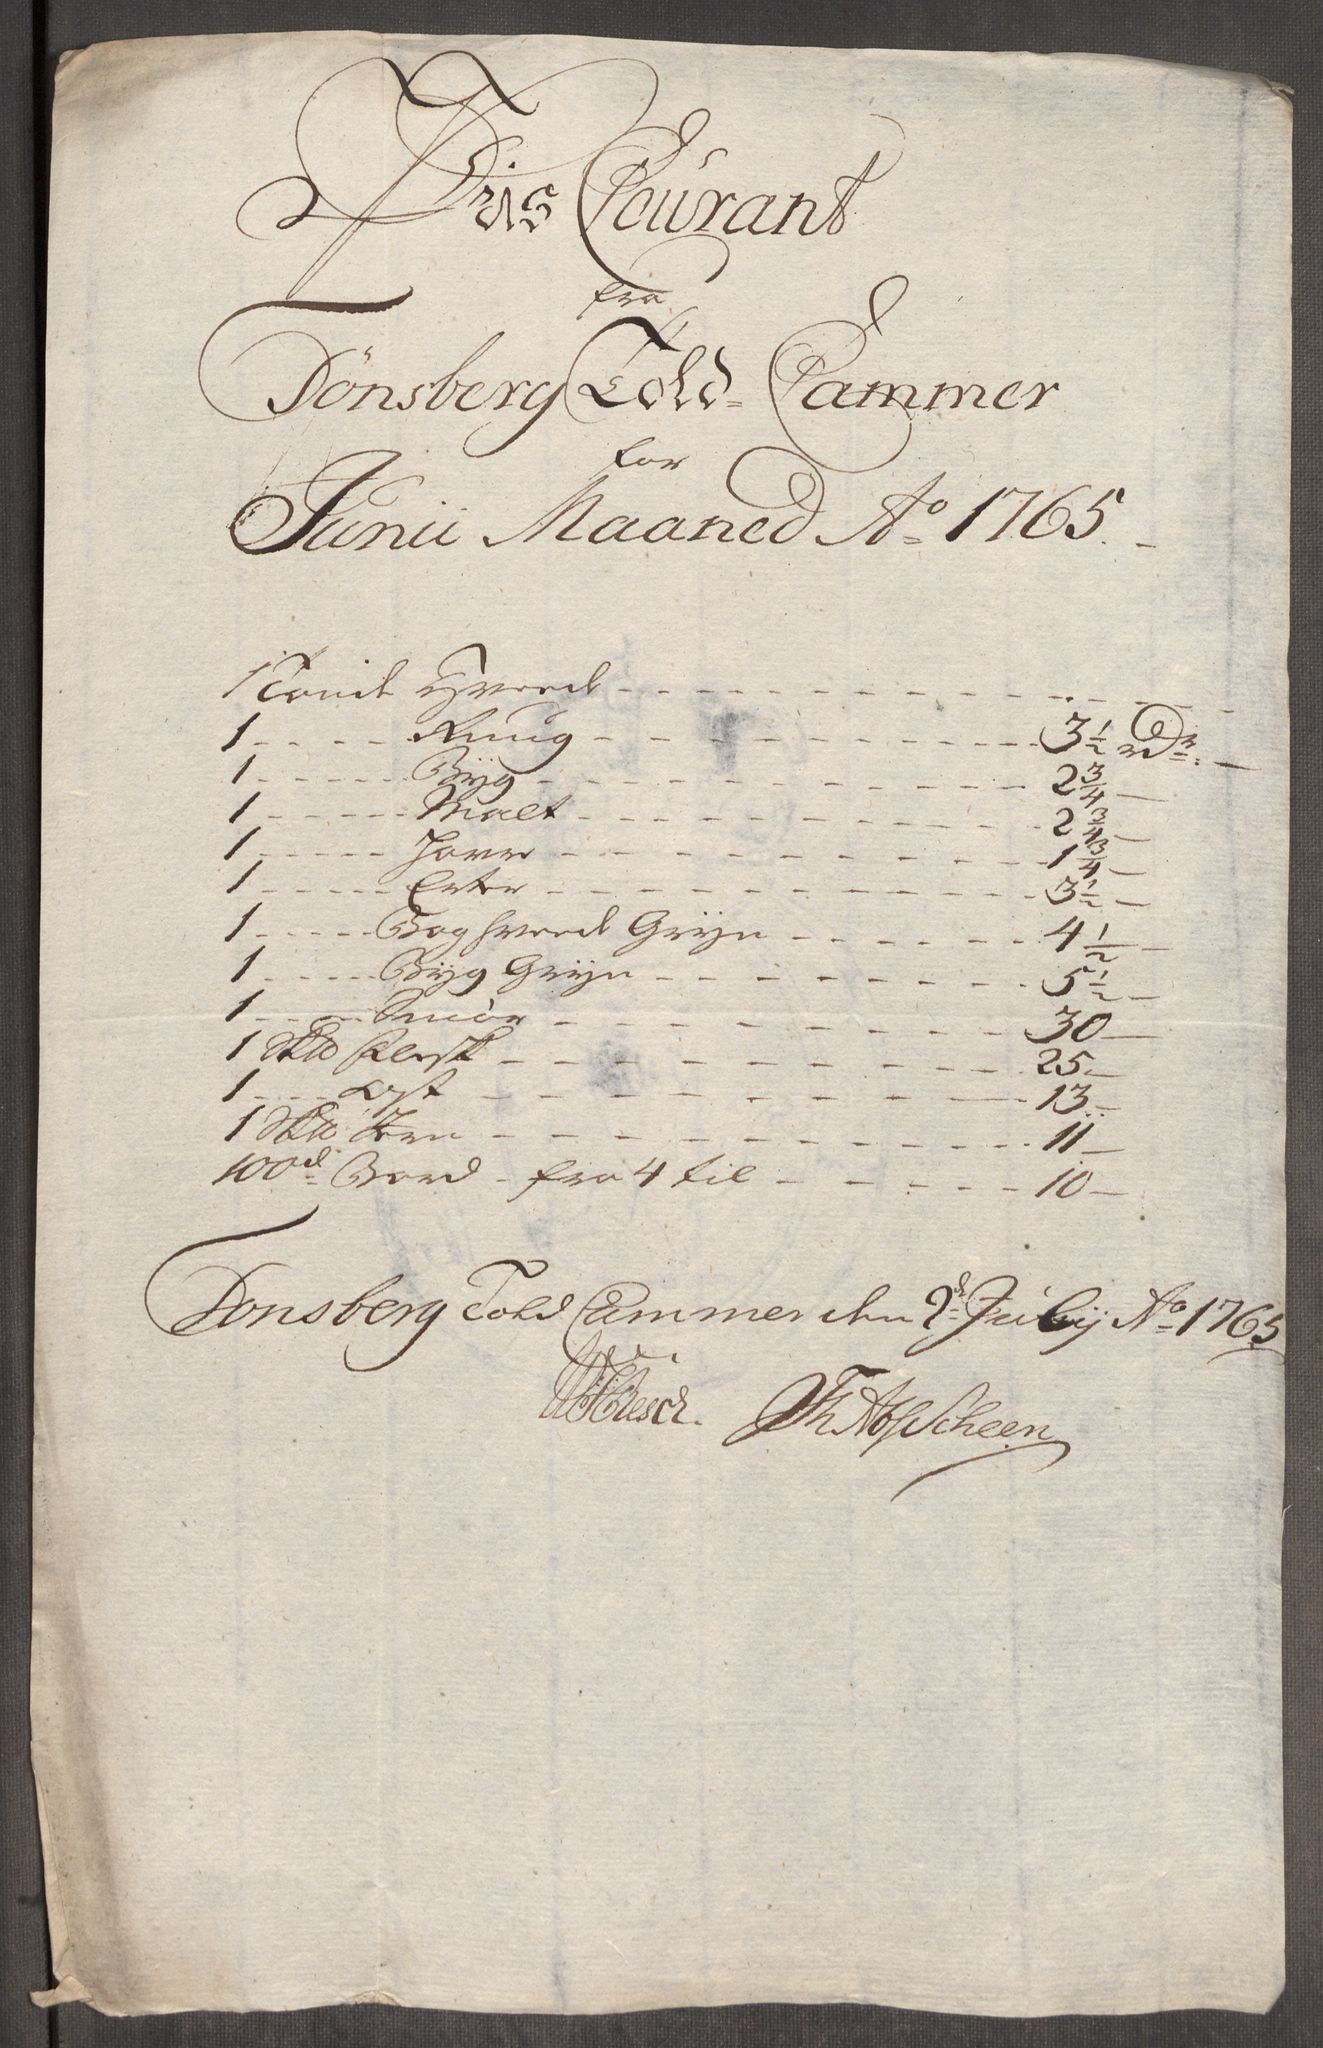 Priis Courant
fra
Tönsberg Told-Cammer
for
Junii Maaned Ao 1765.
1 Tönde Hvede
1 Ruug 3 1/2 rdr.
1 Byg 2 3/4
1 Malt 2 3/4
1 Havre 1 3/4
1 Erter 3 1/2
1 Boghvede Gryn 4 1/2
1 Byg Gryn 5 1/2
1 Smör 30
1 Flesk 25
1 Ost 13
1 Jern 11
100d Bord fra 4 til 10
Tönsberg Told Cammer den 2d Julij Ao 1765
Scheen